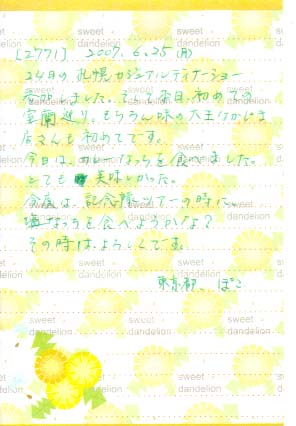 sweet dandelion
[2771] 2007.6.25(月)
24日の札幌カジュアルディナーショー
参加しました。そして本日、初めての
室蘭巡り。もちろん味の大王
店さんも初めてです。
今日は、カレーなっちを食べました。
とても美味しかった。
今度は、記念館ツアーの時に、
塩なっちを食べようかなぁ?
その時はよろしくです。
東京都、ぽこ
sweet dandelion